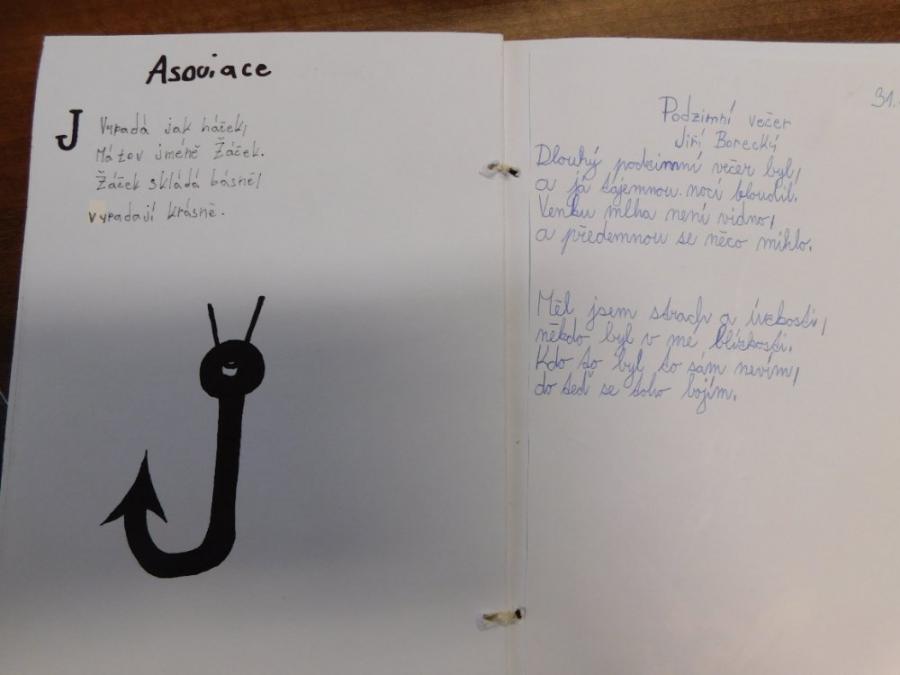 Asociace
J
Vypadá jak háček,
Má tov jméně Žáček.
Žáček skládá básně,
vypadají krásně.
31.
Podzimní večer
Jiří Borecký
Dlouhý podzimní večer byl,
a já tajemnou nocí bloudil.
Venku mlha není vidno,
a předemnou se něco mihlo.
Měl jsem strach a úzkosti,
někdo byl v mé blízkosti.
Kdo to byl to sám nevím,
do teď se toho bojím.